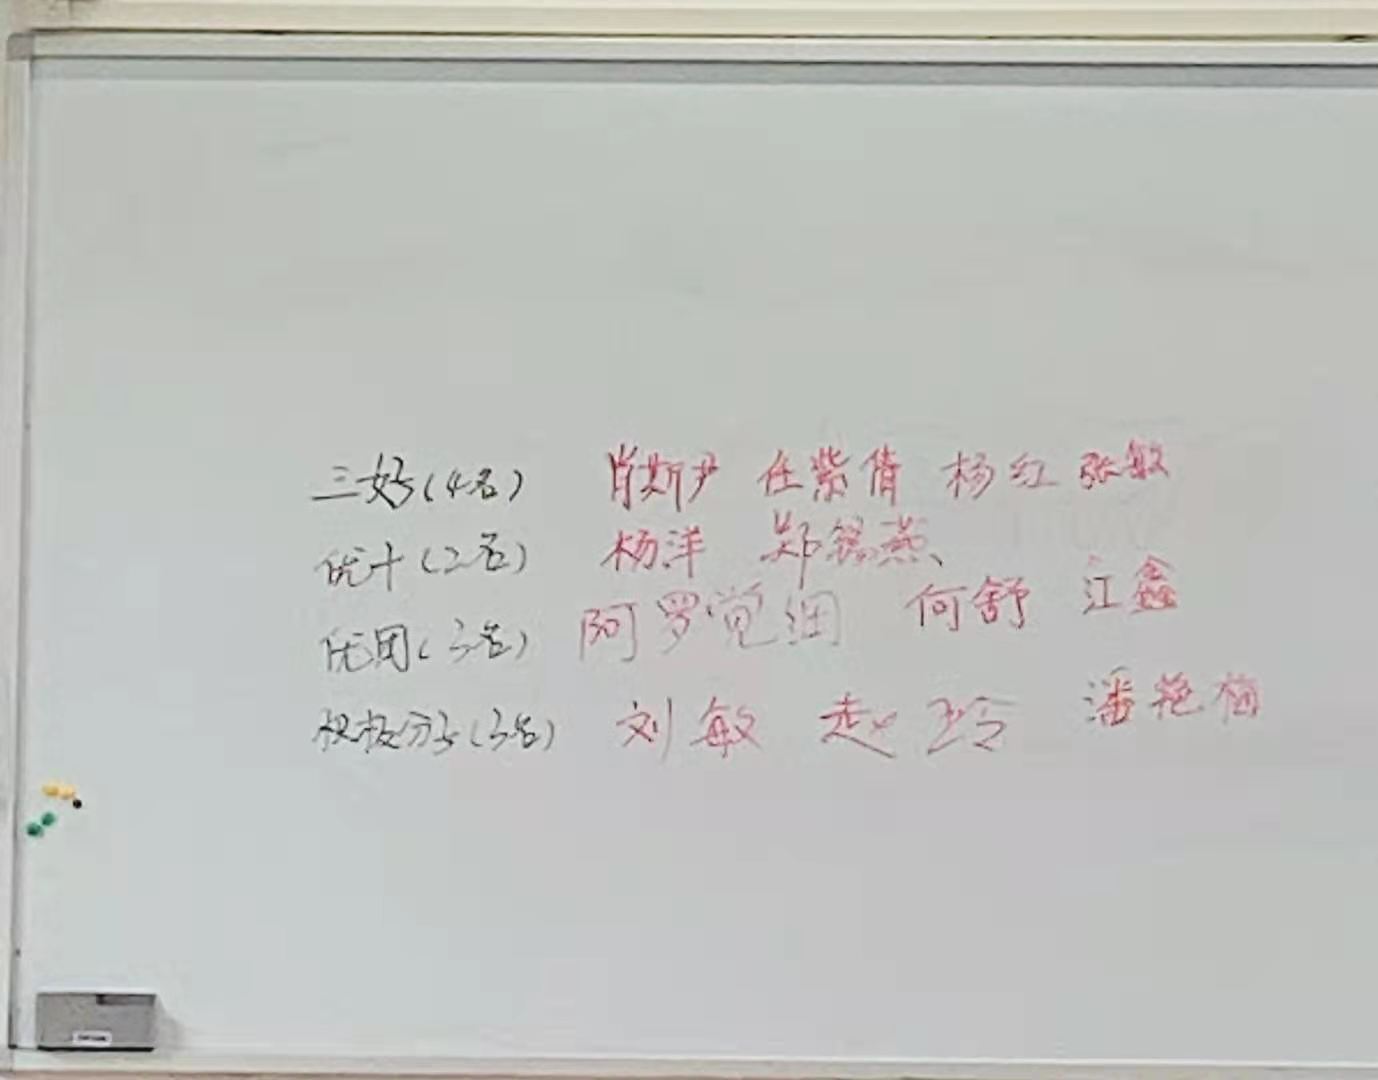 三好(4名) 肖斯尹 任紫倩 杨红 张敏
优干(2名) 杨洋 郑锦燕
优团(3名) 阿罗觉细 何舒 江鑫
积极分子(3名) 刘敏 赵玲 潘艳梅